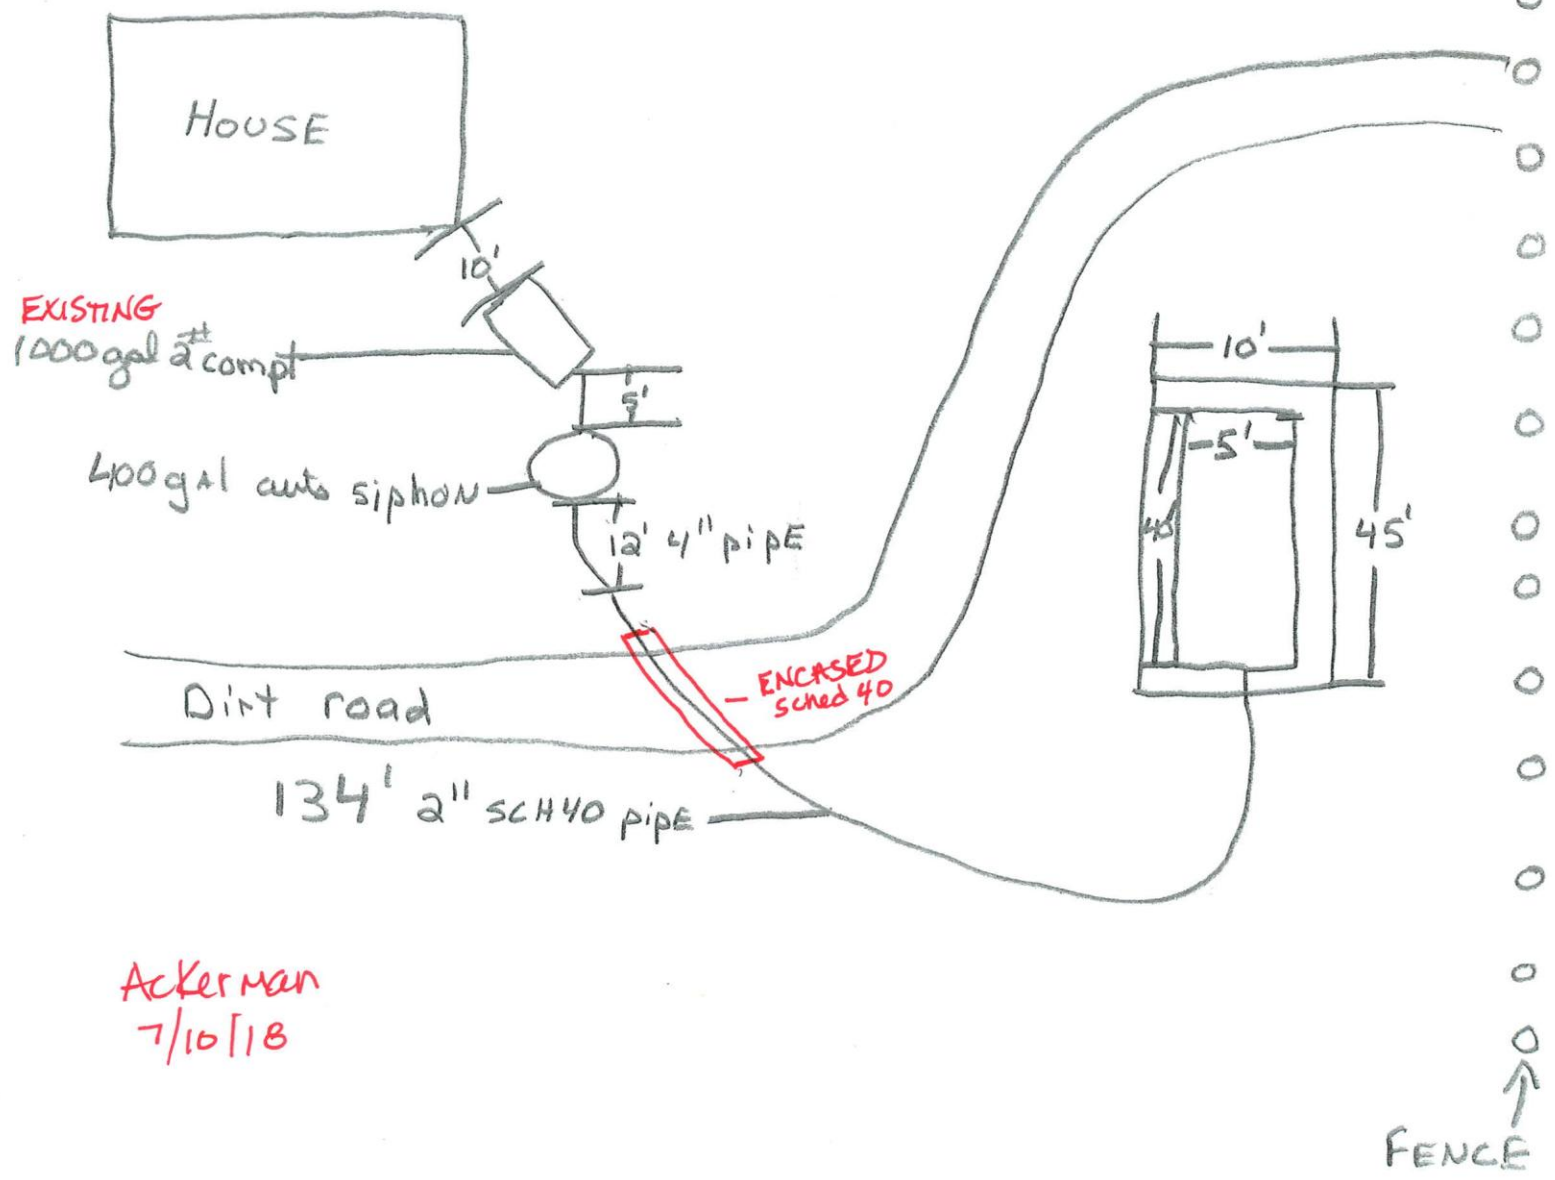 HOUSE
10'
EXISTING
1000 gal 2# compt
5'
400 gal auto siphon
12' 4" pipE
10'
5'
40'
45'
ENCASED
sched 40
Dirt road
134' 2" SCH40 pipE
Ackerman
7/10/18
FENCE